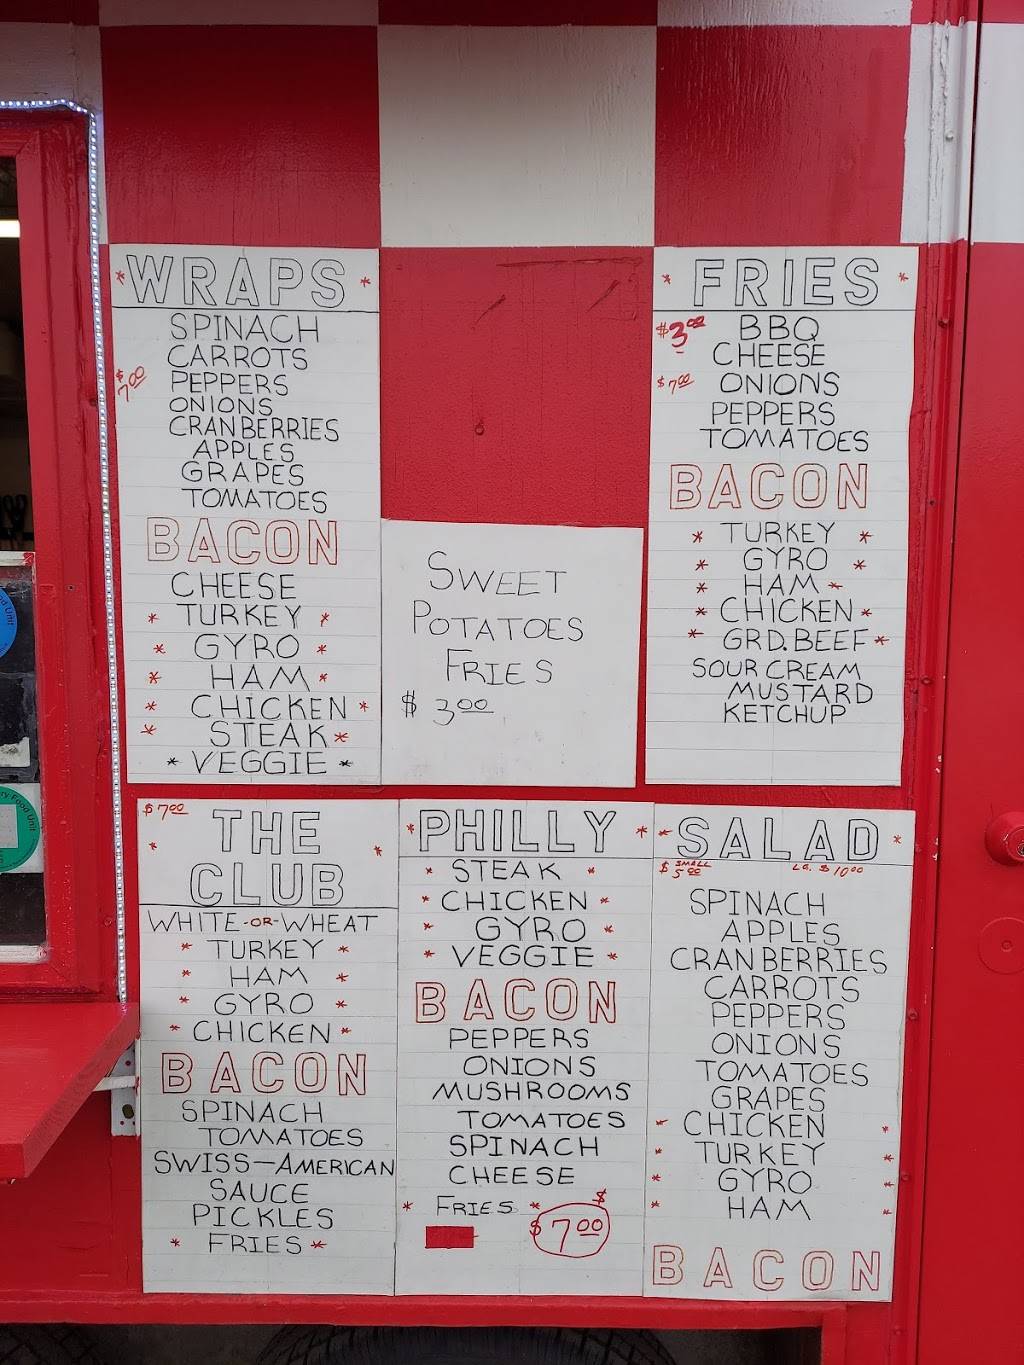 * WRAPS *
SPINACH
CARROTS
$7.00 PEPPERS
ONIONS
CRANBERRIES
APPLES
GRAPES
TOMATOES
BACON
CHEESE
* TURKEY *
* GYRO *
* HAM *
* CHICKEN *
* STEAK *
* VEGGIE *
SWEET
POTATOES
FRIES
$ 3.00
* FRIES *
$3.00 BBQ
CHEESE
$7.00 ONIONS
PEPPERS
TOMATOES
BACON
* TURKEY *
* GYRO *
* HAM *
* CHICKEN *
* GRD. BEEF *
SOUR CREAM
MUSTARD
KETCHUP
$7.00
* THE *
CLUB
WHITE-OR-WHEAT
* TURKEY *
* HAM *
* GYRO *
* CHICKEN *
BACON
SPINACH
TOMATOES
SWISS-AMERICAN
SAUCE
PICKLES
* FRIES *
* PHILLY *
* STEAK *
* CHICKEN *
* GYRO *
* VEGGIE *
BACON
PEPPERS
ONIONS
MUSHROOMS
TOMATOES
SPINACH
CHEESE
* FRIES *
$
$7.00
* SALAD *
$ SMALL 5.00 LG. $10.00
SPINACH
APPLES
CRANBERRIES
CARROTS
PEPPERS
ONIONS
TOMATOES
GRAPES
* CHICKEN *
* TURKEY *
* GYRO *
* HAM *
BACON